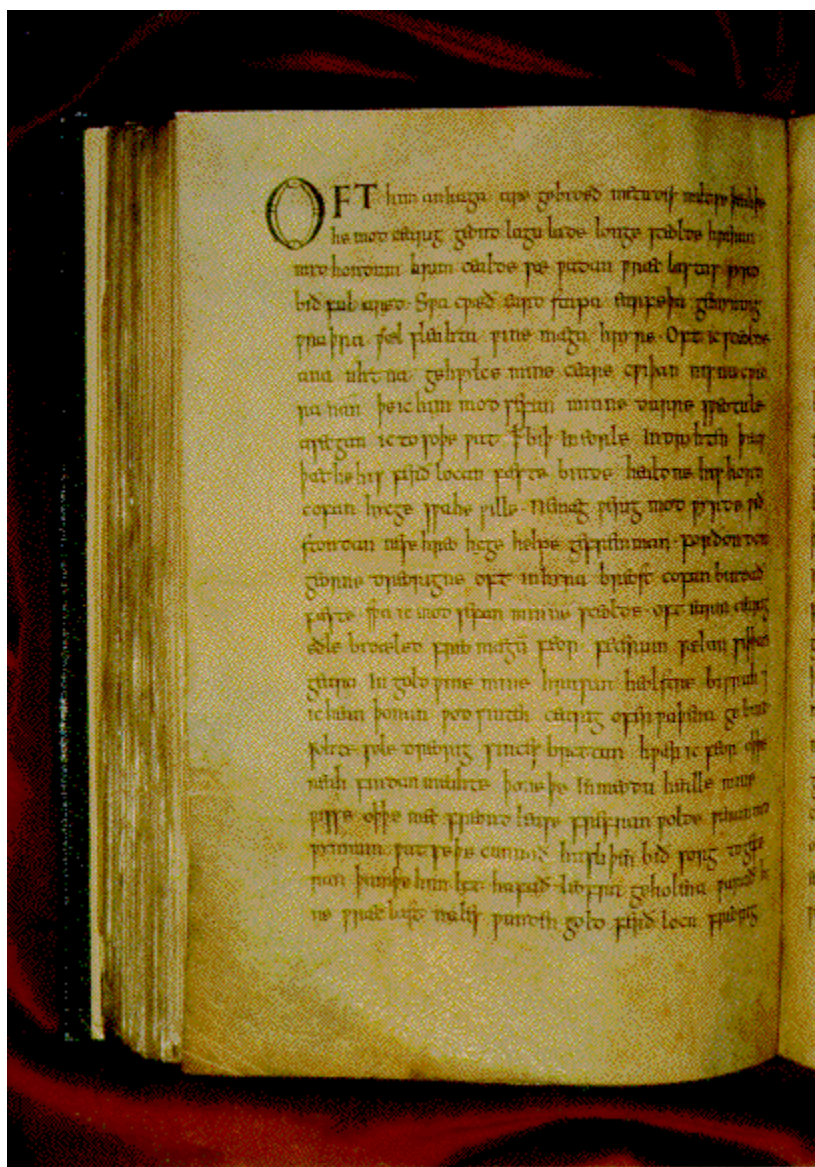 OFT him anhaga are gebideð metudes miltse þeah þe
he mod cearig geond lagu lade longe sceolde hreran
mid hondum hrim cealde sæ ƿadan ƿræc lastas ƿyrd
bið ful aræd. Sƿa cƿæð eard stapa earfeþa gemyndig
ƿraþra ƿæl sleahta ƿine mæga hryre. Oft ic sceolde
ana uhtna gehƿylce mine ceare cƿiþan nis nu cƿic
ra nan þe ic him mod sefan minne durre sƿeotule
asecgan ic to soþe ƿat ꝥ biþ in eorle indryhten þeaƿ
þæt he his ferð locan fæste binde healdne his hord
cofan hycge sƿa he ƿille. Ne mæg ƿerig mod ƿyrde ƿið
stondan ne se hreo hyge helpe gefremman forðon dom
georne dreorigne oft in hyra breost cofan bindað
fæste sƿa ic mod sefan minne sceolde oft earm cearig
eðle bidæled freo mægū feor feterum sælan siþþan
geara iu gold ƿine mine hrusan heolstre biƿrah ⁊
ic hean þonan ƿod ƿinter cearig ofer ƿaþena gebind
sohte sele dreorig sinces bryttan hƿær ic feor oþþe
neah findan meahte þone þe in meodu healle mine
ƿisse oþþe mec freond lease frefran ƿolde ƿeman mid
ƿynnum ƿat se þe cunnað hu sliþen bið sorg to gefe
ran þam þe him lyt hafað leofra geholena ƿarað hi
ne ƿræc last nales ƿunden gold ferð loca freorig